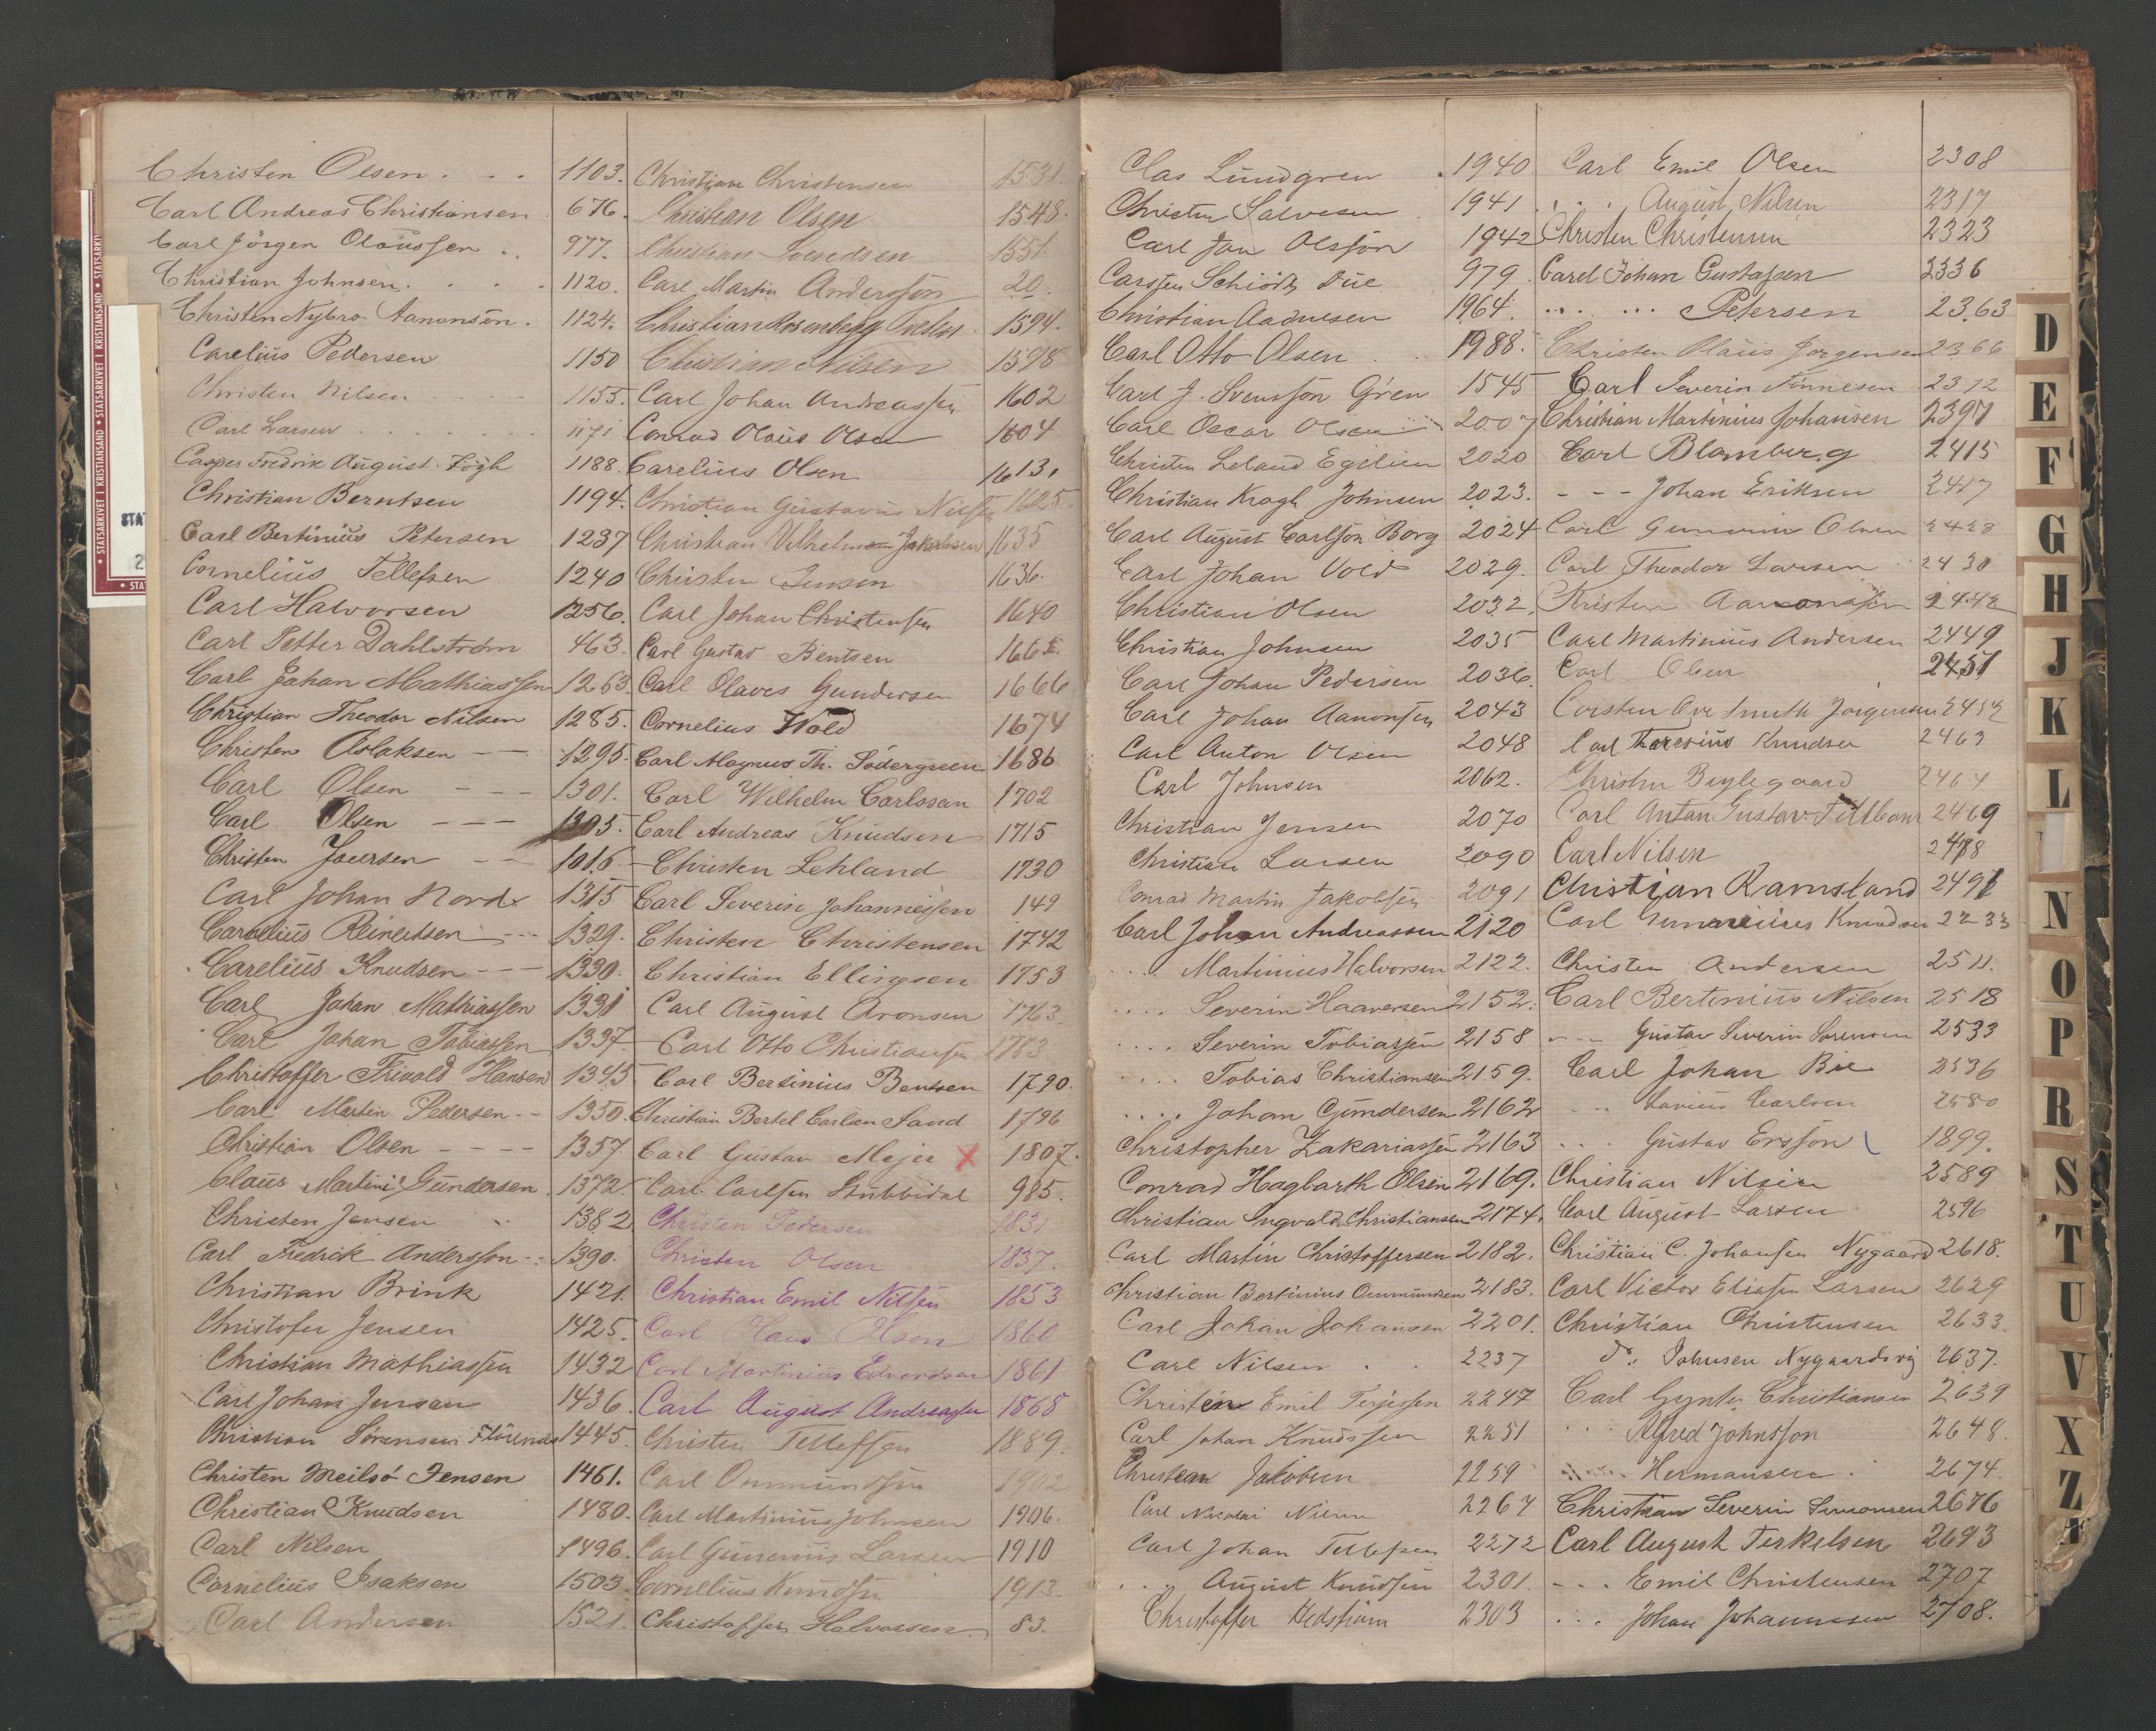 Christen Olsen . . . 1103.
Carl Andreas Christiansen 676.
Carl Jörgen Olaussen . . 977.
Christian Johnsen . . . . 1120.
Christen Nybro Aanonsen . 1124.
Carelius Pedersen 1150
Christen Nilsen 1155.
Carl Larsen 1171
Casper Fredrik August Fögh 1188.
Christian Berntsen 1194.
Carl Bertinius Petersen 1237
Cornelius Tellefsen 1240
Carl Halvorsen 1256.
Carl Petter Dahlström 463.
Carl Johan Mathiassen 1263
Christian Theodor Nilsen 1285.
Christen Aslaksen — — 1295.
Carl Olsen — — 1301.
Carl Olsen — — — 1305.
Christen — — 1016.
Carl Johan Nord 1315
Carelius Reinertsen — 1329.
Carelius Knudsen — — 1330.
Carl Johan Mathiassen 1331
Carl Johan Tobiassen 1337.
Christoffer Trivold Hansen 1345
Carl Martin Pedersen — 1350.
Christian Olsen — — — 1357.
Claus Martini Gundersen 1372.
Christen Jensen 1382
Carl Fredrik Andersson 1390.
Christian Brink 1421.
Christofer Jensen 1425.
Christian Mathiassen 1432
Carl Johan Jensen 1436.
Christian Sörensen 1445.
Christen Meilsö Jensen 1461.
Christian Knudsen 1480.
Carl Nilsen 1496.
Cornelius Isaksen 1503.
Carl Andersen 1521.
Christian Christensen 1531.
Christian Olsen 1548.
Christian Svendsen 1551.
Carl Martin Andersson 20.
Christian Rosenberg 1594.
Christian Nilsen 1598
Carl Johan Andreassen 1602
Conrad Olaus Olsen 1604
Carelius Olsen 1613.
Christian Gustavus Nilsen 1625.
Christian Vilhelm Jakobsen 1635
Christen Jensen 1636.
Carl Johan Christensen 1640
Carl Gustav Bentsen 1665.
Carl Olaves Gundersen 1666
Cornelius Wold 1674
Carl Magnus Th. Södergreen 1686
Carl Wilhelm Carlssan 1702
Carl Andreas Knudsen 1715
Christen Lehland 1730
Carl Severin Johannessen 149
Christen Christensen 1742
Christian Ellingsen 1753
Carl August Aronsen 1763
Carl Otto Christiansen 1783
Carl Bertinius Bentsen 1790.
Christian Bertel Carlsen Sand 1796
Carl Gustav Mejer x 1807.
Carl Carlsen Stubbidal 985.
Christen Pedersen 1831
Christen Olsen 1837.
Christian Emil Nilsen 1853
Carl Hans Olsen 1860
Carl Martinius Edvardsen 1861
Carl August Andreassen 1868
Christen Tellefsen 1889.
Carl Ommundsen 1902
Carl Martinius Johnsen 1906.
Carl Gunerius Larsen 1910
Cornelius Knudsen 1913.
Christoffer Halvorsen 83.
Clas Lundgren 1940
Christen Salvesen 1941
Carl Jan Olsson 1942
Carsten Schiödt Due 979
Christian Aadnesen 1964.
Carl Otto Olsen 1988.
Carl J. Svensson Gren 1545
Carl Oscar Olsen 2007
Christen Leland Egelien 2020
Christian Kragh Johnsen 2023.
Carl August Carlson Borg 2024
Carl Johan Vold 2029.
Christian Olsen 2032.
Christian Johnsen 2035
Carl Johan Pedersen 2036.
Carl Johan Aanonsen 2043
Carl Anton Olsen 2048
Carl Johnsen 2062.
Christian Jensen 2070
Christian Larsen 2090
Conrad Martin Jakobsen 2091
Carl Johan Andreassen 2120
. . . . Martinius Halvorsen 2122.
. . . . Severin Haaversen 2152.
. . . . Severin Tobiassen 2158
. . . . Tobias Christiansen 2159.
. . . . Johan Gundersen 2162
Christopher Zakariassen 2163
Conrad Hagbarth Olsen 2169.
Christian Ingvald Christiansen 2174.
Carl Martin Christoffersen 2182.
Christian Bertinius Ommundsen 2183.
Carl Johan Johansen 2201.
Carl Nilsen 2237
Christen Emil Terjesen 2247
Carl Johan Knudsen 2251
Christian Jakobsen 2259
Carl Nicolai Nilsen 2267
Carl Johan Tellefsen 2272
. . August Knudsen 2301.
Christoffer Hedström 2303
Carl Emil Olsen 2308
. . . August Nilsen 2317
Christen Christensen 2323
Carel Johan Gustafsen 2336
. . . . . . Petersen 2363
Christen Olaus Jorgensen 2366
Carl Severin Tönnesen 2372
Christian Martinius Johansen 2397
Carl Blomberg 2415
- - - Johan Eriksen 2417
Carl Gunerius Olsen 2428
Carl Theodor Larsen 2430
Kristen Aanonsen 2442
Carl Martinius Andersen 2449
Carl Olsen 2451
Carsten Ove Smith Jörgensen 2452
Carl Theresius Knudsen 2463
Christen Brylegaard 2464
Carl Anton Gustav 2469
Carl Nilsen 2478
Christian Ramsland 2491
Carl Gunerius Knudsen 2233
Christen Andersen 2511.
Carl Bertinius Nilsen 2518
- - - Gustav Severin Sörensen 2533
Carl Johan Bie 2536
Carlsen 2580
. . . Gustav Ersson 1899.
Christian Nilsen 2589
Carl August Larsen 2596
Christian C. Johansen Nygaard 2618.
Carl Victor Eliasen Larsen 2629
Christian Christensen 2633.
do. Johnsen Nygaardsvig 2637.
Carl Gynter Christiansen 2639
. . Alfred Johnsson 2648.
Hermansen 2674.
Christian Severin Simonsen 2676
Carl August Terkelsen 2693
- - . Emil Christensen 2707
. . . Johan Johannessen 2708.
D
E
F
G
H
J
K
L
N
O
P
R
S
T
U
V
X
Z
STATSARKIVET I KRISTIANSAND • STATSARKIVET I KRISTIANSAND • STATSARKI
STA
2